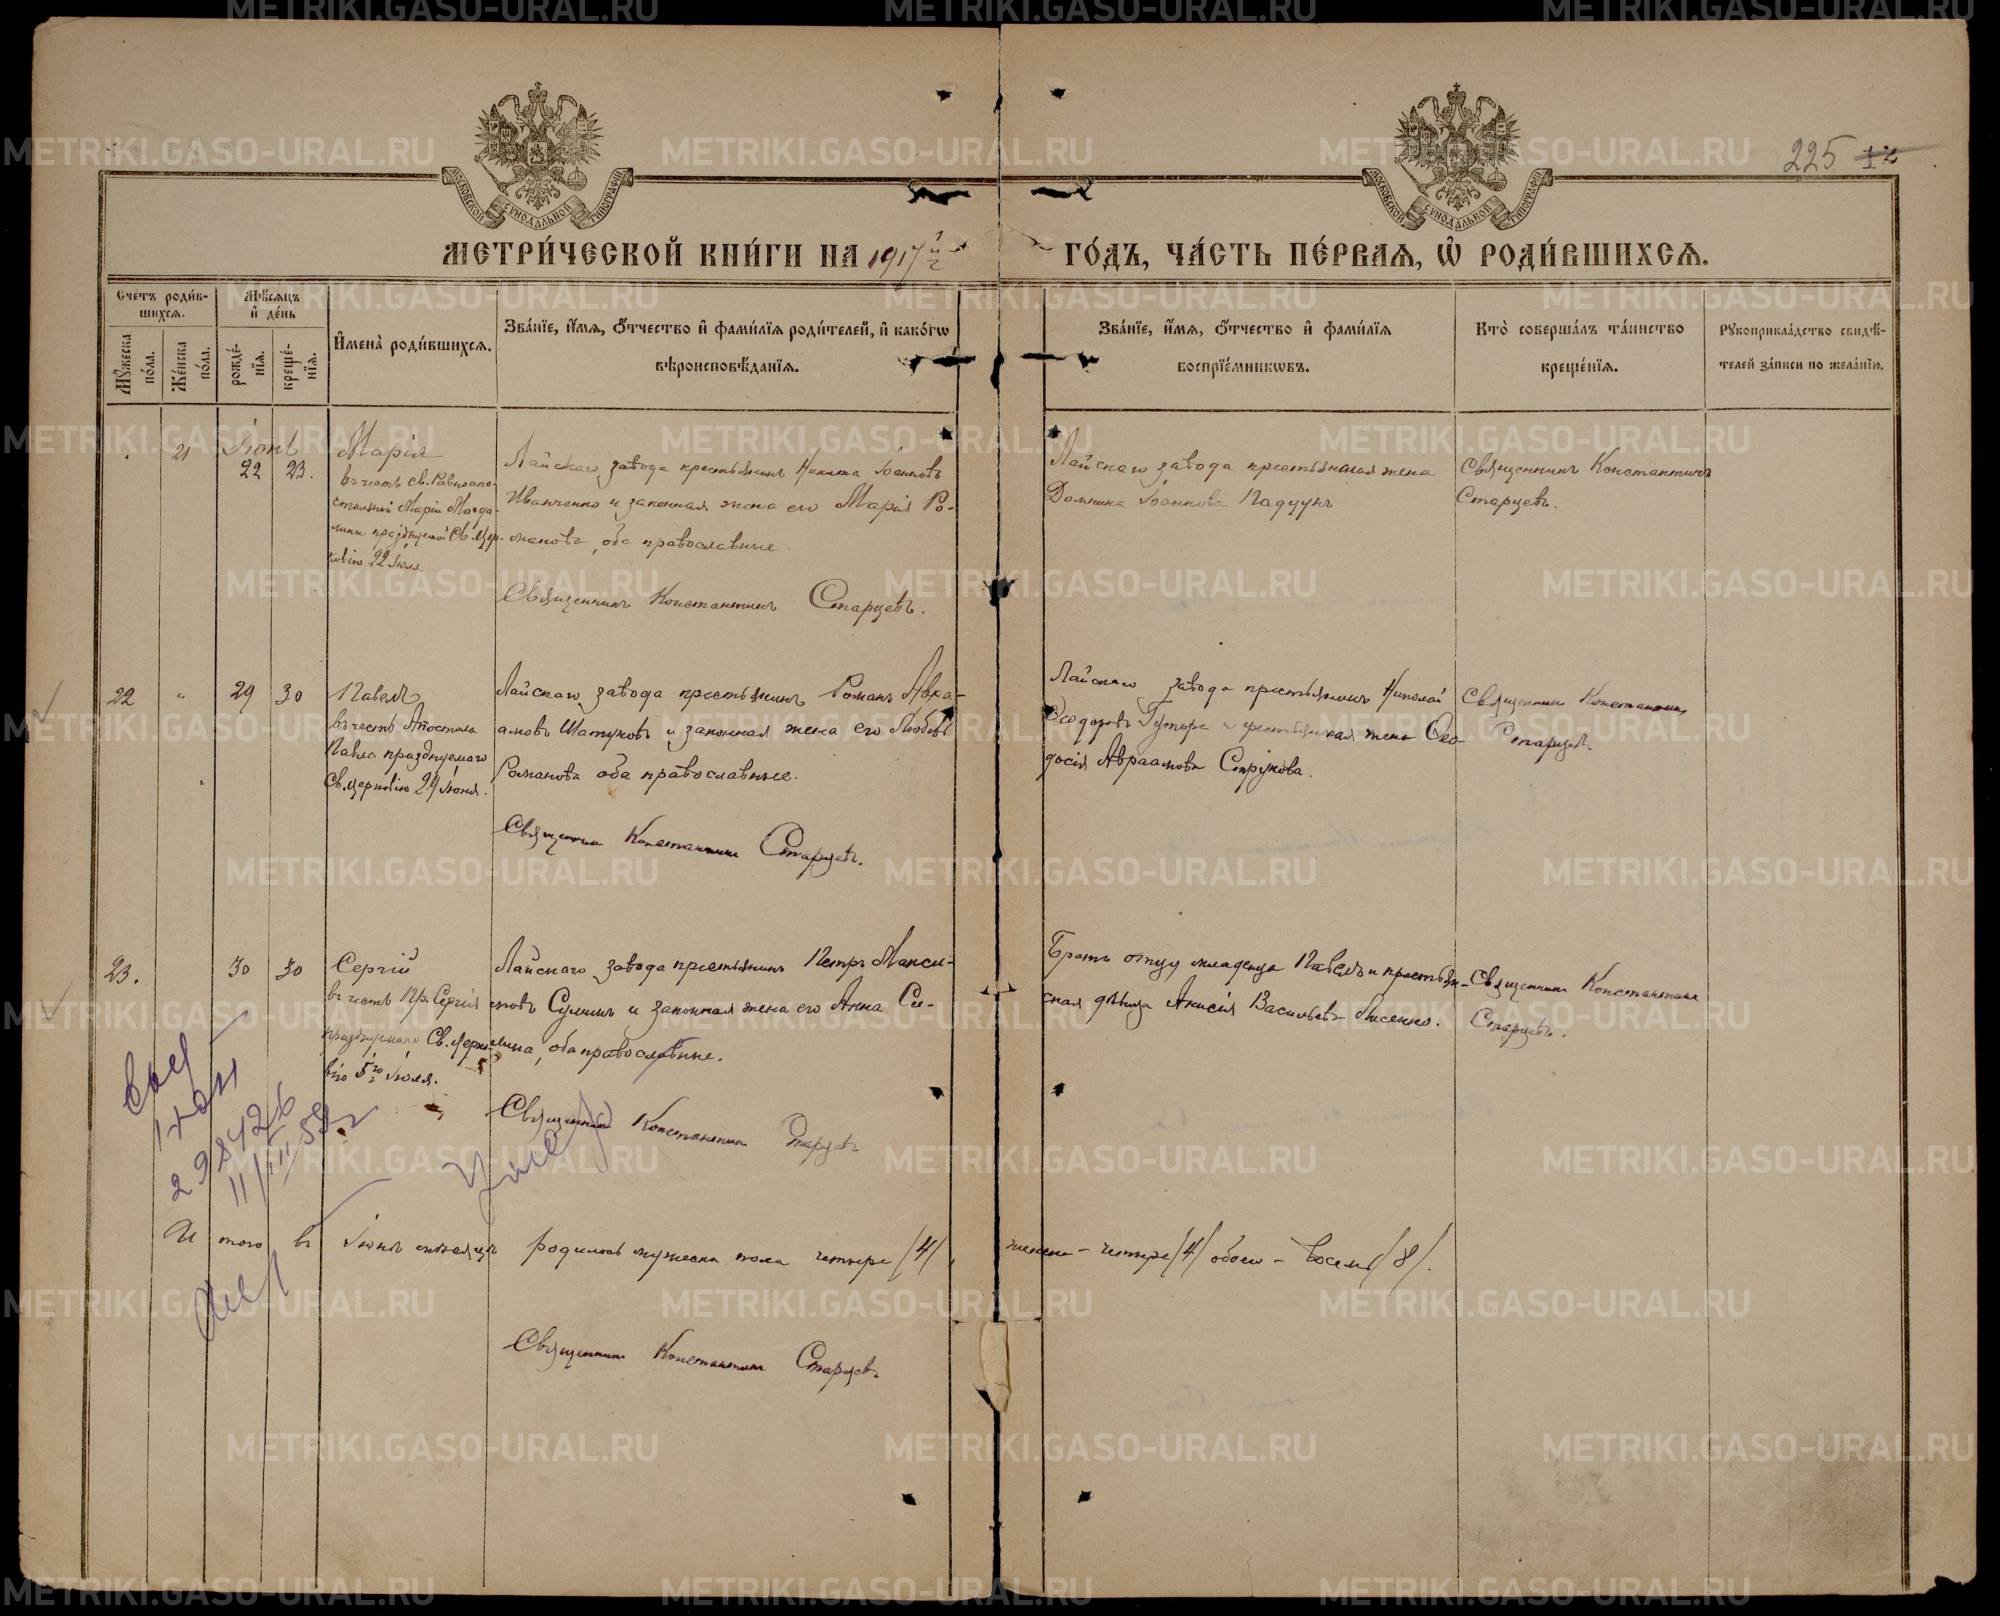 METRIKI.GASO-URAL.RU
225 12
МОСКОВСКОЙ СУНОДАЛЬНОЙ ТИПОГРАФІИ
МОСКОВСКОЙ СУНОДАЛЬНОЙ ТИПОГРАФІИ
МЕТРИ́ЧЕСКОЙ КНИ́ГИ НА 1917 й ГО́ДЪ, ЧА́СТЬ ПЕ́РВАѦ, Ѡ҆ РОДИ́ВШИХСѦ.
Сче́тъ роди́в-
шихсѧ.
Мѣ́сѧцъ
и҆ де́нь
Му́жеска по́ла.
Же́нска по́ла.
рожде́-
нїѧ.
креще́-
нїѧ.
И҆мена̀ роди́вшихсѧ.
Зва́нїе, и҆́мѧ, ѻ҆́тчество и҆ фами́лїѧ роди́телей, и҆ како́гѡ
вѣроисповѣ́данїѧ.
Зва́нїе, и҆́мѧ, ѻ҆́тчество и҆ фами́лїѧ
воспрїе́мникѡвъ.
Кто̀ соверша́лъ та́инство
креще́нїѧ.
Рукоприкла́дство свидѣ́-
телей за́писи по жела́нїю.
21 Іюнь 22 23.
Марія
въ честь св. Равноапо-
стольной Маріи Магда-
лины празднуемой Св. Цер-
ковію 22 Іюля.
Лайскаго завода крестьянинъ Никита Іоанновъ
Иванченко и законная жена его Марія Ро-
манова, оба православные.
Священникъ Константинъ Старцевъ.
Лайскаго завода крестьянская жена
Домника Іоаннова Падунъ
Священникъ Константинъ
Старцевъ.
22 " 29 30
Павелъ
въ честь Апостола
Павла празднуемаго
Св. церковію 29 Іюня.
Лайскаго завода крестьянинъ Романъ Авра-
амовъ Шатуновъ и законная жена его Любовь
Романова оба православные.
Священникъ Константинъ Старцевъ.
Лайскаго завода крестьянинъ Николай
Ѳеодоровъ и крестьянская жена Ѳео-
досія Авраамова Струкова.
Священникъ Константинъ
Старцевъ.
23. 30 30
Сергій
въ честь Пр. Сергія
празднуемаго Св. Церко-
вію 5го Іюля.
Лайскаго завода крестьянинъ Петръ Макси-
мовъ Сулинъ и законная жена его Анна Си-
мина, оба православные.
Священникъ Константинъ Старцевъ
Братъ отцу младенца Павелъ и крестьян-
ская дѣвица Анисія Васильева Лысенко.
Священникъ Константинъ
Старцевъ.
298426
11/III 58г
Итого въ Іюнѣ мѣсяцѣ родилось мужеска пола четыре /4/, женска – четыре /4/ обоего – восемь /8/.
Священникъ Константинъ Старцевъ